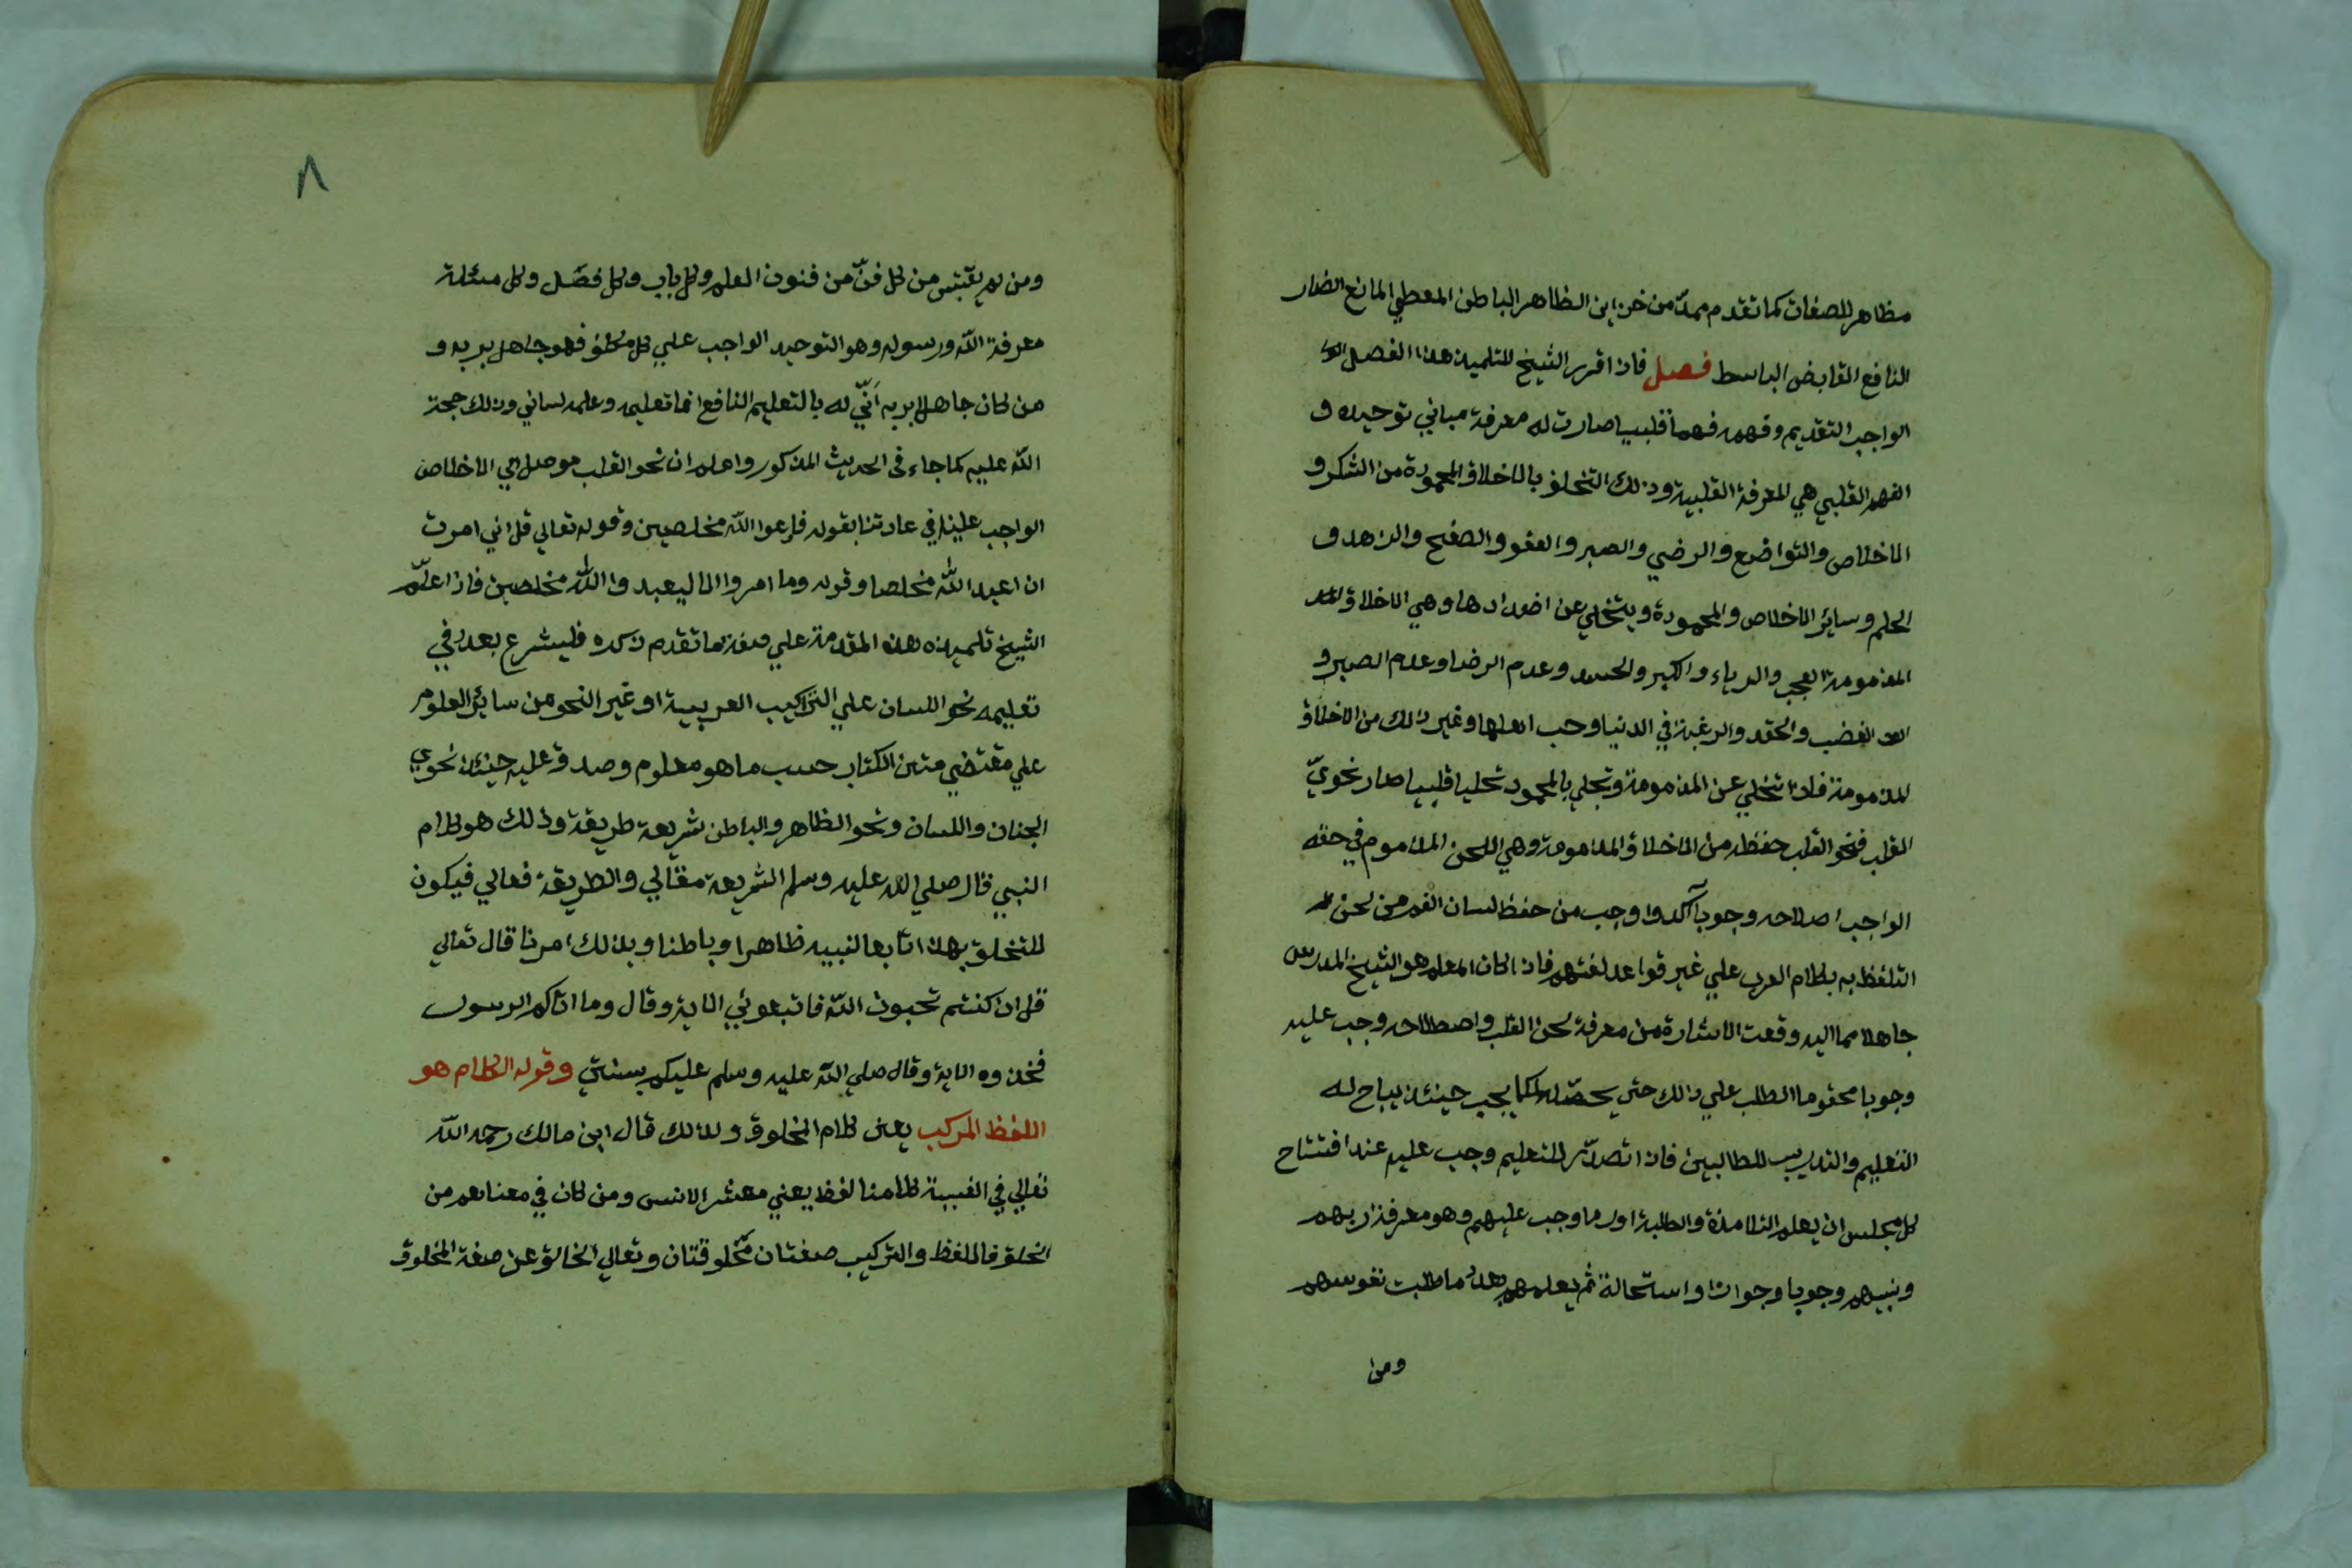 مظاهر للصفات كما تقدم ممدّ من خزاين الظاهر الباطن المعطي المانع الضار
النافع القابض الباسط فصل فاذا قرر الشيخ للتلميذ هذا الفصل
الواجب التقديم وفهمه فهما قلبيا صارت له معرفة مباني توحيده و
الفهم القلبي هي المعرفة القلبية وذلك التخلق بالاخلاق المحمودة من الشكر و
الاخلاص والتواضع والرضي والصبر والعفو والصفح والزهد و
الحلم وساير الاخلاص والمحمودة ويتخلي عن اضدادها وهي الاخلاق
المذمومة العجب والرياء والكبر والحسد وعدم الرضا وعدم الصبر و
الغضب والحقد والرغبة في الدنيا وحب اهلها وغير ذلك من الاخلاق
المذمومة فاذا تخلي عن المذمومة وتحلي بالمحمود تحليا قلبيا صار نحويّ
القلب فنحو القلب حفظه من الاخلاق المذمومة وهي اللحن المذموم في حقه
الواجب اصلاحه وجوبا آكد واوجب من حفظ لسان الفم من لحن
التلفظ به بكلام العرب علي غير قواعد لغتهم فاذا كان المعلم هو الشيخ المدرس
جاهلا مما اليه وقعت الاشارة من معرفة لحن القلب واصطلاحه وجب عليه
وجوبا محتوما الطلب علي ذلك حتي يحصّله كما يجب حينئذ يباح له
التعليم والتدريس للطالبين فاذا تصدّر للتعليم وجب عليه عند افتتاح
كل مجلس ان يعلم التلامذة والطلبة اول ما وجب عليهم وهو معرفة ربهم
ونبيهم وجوبا وجوازا واستحالة ثم يعلمهم بعد ما طلبت نفوسهم
ومن
٨
ومن لم يقتبس من كل فنّ من فنون العلم وكل باب وكل فصل وكل مسئلة
معرفة الله ورسوله وهو التوحيد الواجب علي كل مكلف فهو جاهل بربه و
من كان جاهلا بربه اَنّي له بالتعليم النافع انما تعليمه وعلمه لساني وذلك حجة
الله عليه كما جاء في الحديث المذكور واعلم ان نحو القلب موصل الي الاخلاص
الواجب علينا في عادتنا بقوله فادعوا الله مخلصين وقوله تعالي قل اني امرت
ان اعبد الله مخلصا وقوله وما امروا الا ليعبدوا الله مخلصين فاذا علّم
الشيخ تلميذه هذه المقدمة علي صفة ما تقدم ذكره فليشرع بعد في
تعليمه نحو اللسان علي التراكيب العربية او غير النحو من سائر العلوم
علي مقتضي متن الكتاب حسب ما هو معلوم وصدق عليه حينئذ نحوي
الجنان واللسان ونحو الظاهر والباطن شريعة طريقة وذلك هو كلام
النبي قال صلي الله عليه وسلم الشريعة مقالي والطريقة فعالي فيكون
المتخلق بهذا تابعا لنبيه ظاهرا وباطنا وبذلك امرنا قال تعالي
قل ان كنتم تحبون الله فاتبعوني الاية وقال وما اتاكم الرسول
فخذوه الاية وقال صلي الله عليه وسلم عليكم بسنتي وقوله الكلام هو
اللفظ المركب يعني كلام المخلوق ولذلك قال ابن مالك رحمه الله
تعالي في الفيية كلامنا لفظ يعني معشر الانس ومن كان في معناهم من
الخلق فاللفظ والتركيب صفتان مخلوقتان وتعالي الخالق عن صفة المخلوق